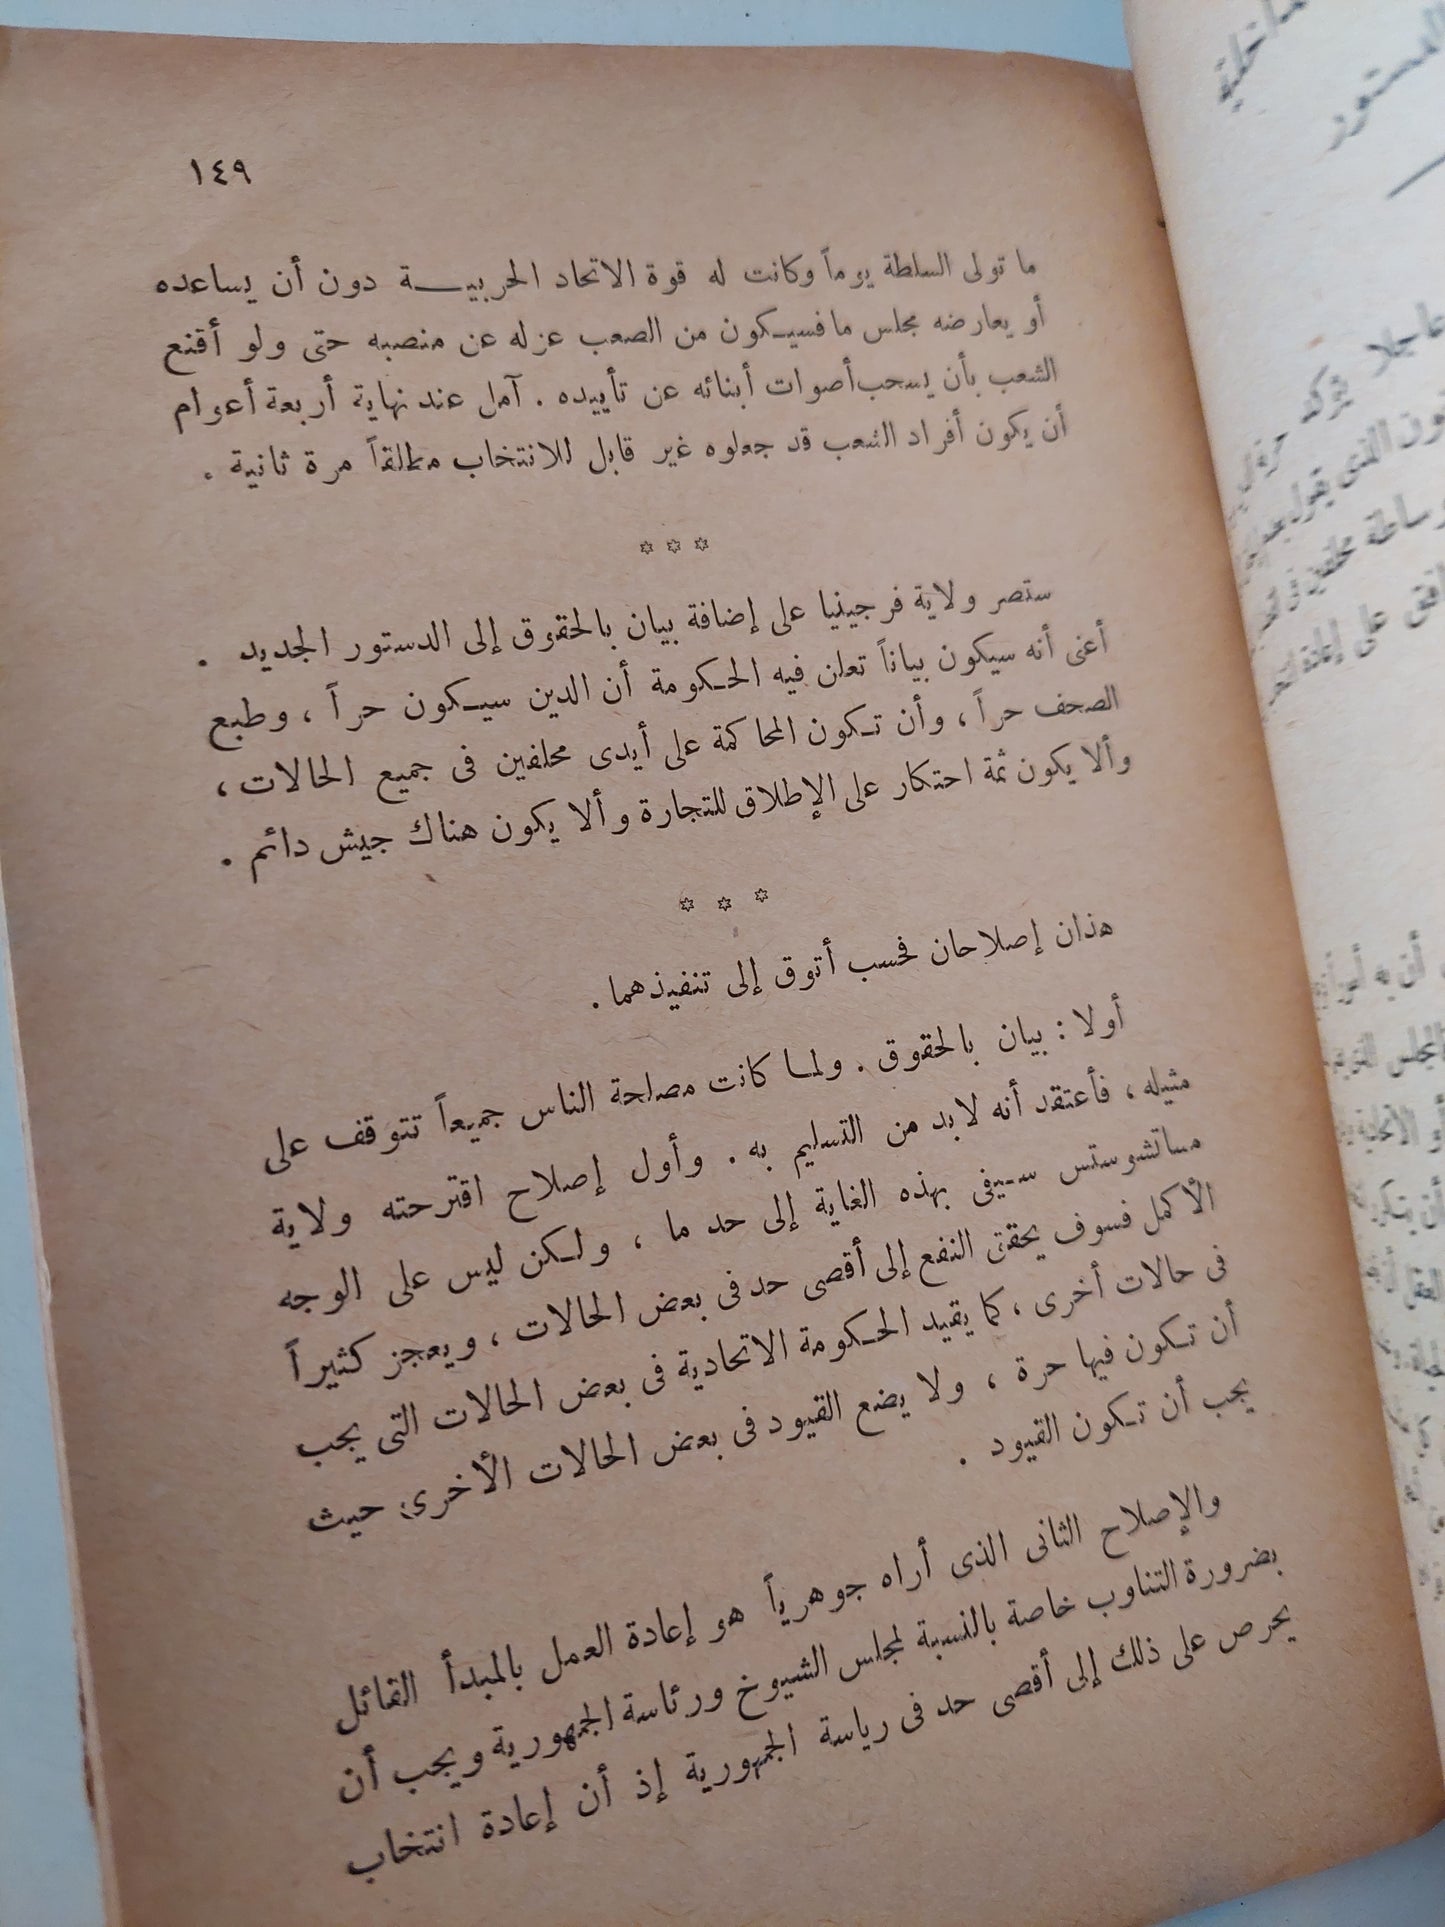 ١٤٩
ما تولى السلطة يوماً وكانت له قوة الاتحاد الحربيــة دون أن يساعده
أو يعارضه مجلس ما فسيكون من الصعب عزله عن منصبه حتى ولو أقنع
الشعب بأن يسحب أصوات أبنائه عن تأييده . آمل عند نهاية أربعة أعوام
أن يكون أفراد الشعب قد جعلوه غير قابل للانتخاب مطلقاً مرة ثانية .
* * *
ستصر ولاية فرجينيا على إضافة بيان بالحقوق إلى الدستور الجديد .
أعنى أنه سيكون بياناً تعلن فيه الحكومة أن الدين سيكون حراً ، وطبع
الصحف حراً ، وأن تكون المحاكمة على أيدى محلفين فى جميع الحالات ،
وألا يكون ثمة احتكار على الإطلاق للتجارة وألا يكون هناك جيش دائم .
* * *
هذان إصلاحان فحسب أتوق إلى تنفيذهما .
أولا : بيان بالحقوق . ولما كانت مصلحة الناس جميعاً تتوقف على
مثيله ، فأعتقد أنه لابد من التسليم به . وأول إصلاح اقترحته ولاية
مساتشوستس سيفى بهذه الغاية إلى حد ما ، ولكن ليس على الوجه
الأكمل فسوف يحقق النفع إلى أقصى حد فى بعض الحالات ، ويعجز كثيراً
فى حالات أخرى ، كما يقيد الحكومة الاتحادية فى بعض الحالات التى يجب
أن تكون فيها حرة ، ولا يضع القيود فى بعض الحالات الأخرى حيث
يجب أن تكون القيود .
والإصلاح الثانى الذى أراه جوهرياً هو إعادة العمل بالمبدأ القائل
بضرورة التناوب خاصة بالنسبة لمجلس الشيوخ ورئاسة الجمهورية ويجب أن
يحرص على ذلك إلى أقصى حد فى رياسة الجمهورية إذ أن إعادة انتخاب